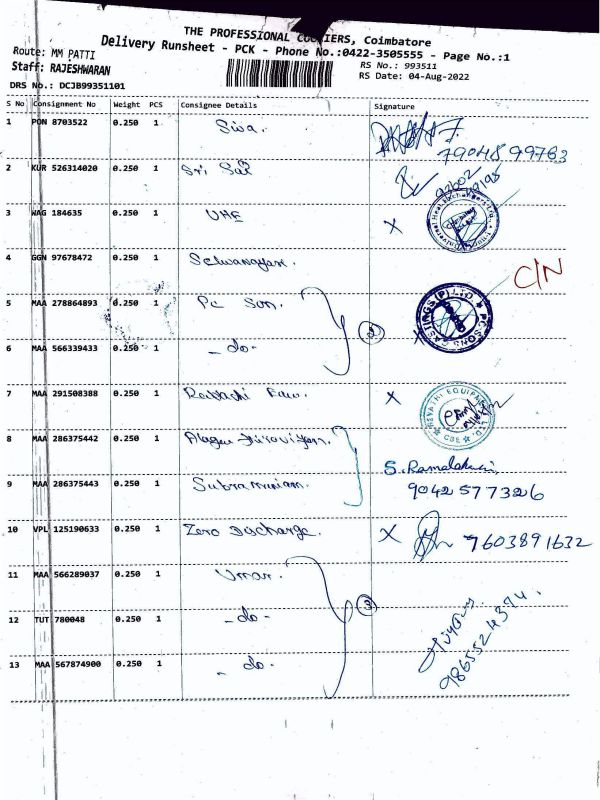 THE PROFESSIONAL COURIERS, Coimbatore
Delivery Runsheet - PCK - Phone No.:0422-3505555 - Page No.:1
Route: MM PATTI
RS No.: 993511
Staff: RAJESHWARAN
RS Date: 04-Aug-2022
DRS No.: DCJB99351101
S No Consignment No Weight PCS Consignee Details Signature
1 PON 8703522 0.250 1 Siva.
7904899763
2 KUR 526314020 0.250 1 Sri Sai
3 NAG 184635 0.250 1 UHE X
4 GGN 97678472 0.250 1 Selvanayaki. C/N
5 MAA 278864893 0.250 1 Pc Son.
CASTINGS (P) LTD
2
6 MAA 566339433 0.250 1 - do -
7 MAA 291508388 0.250 1 X
REVATHI EQUIPMENT LTD
CBE
8 MAA 286375442 0.250 1
S. Ramalakshmi
9 MAA 286375443 0.250 1 Subramaniam. 9042577326
10 VPL 125190633 0.250 1 Zero Discharge. X 7603891632
11 MAA 566289037 0.250 1 Umar.
3
12 TUT 780048 0.250 1 - do -
9865524374.
13 MAA 567874900 0.250 1 - do -